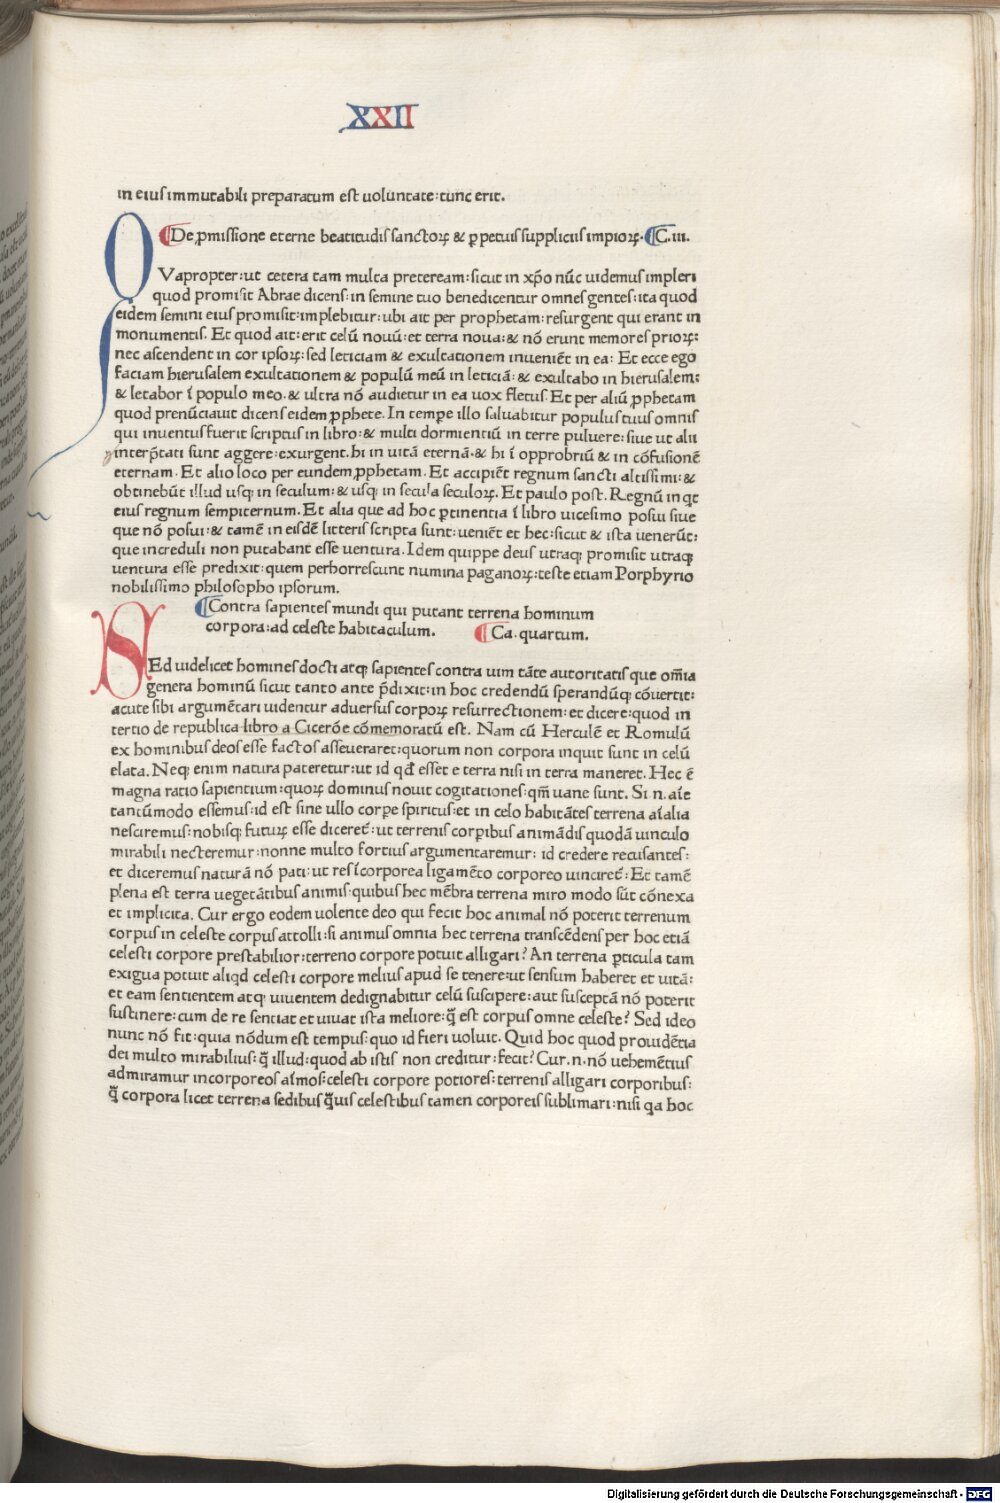 XXII
in eiuſ immutabili preparatum eſt uoluntate:tunc erit.
¶De ꝓmiſſione eterne beatitudiſ ſanctoꝝ & ꝑpetuiſ ſuppliciiſ impioꝝ. ¶C.iii.
QVapropter:ut cetera tam multa preteream:ſicut in xp̄o nūc uidemuſ impleri
quod promiſit Abrae dicenſ:in ſemine tuo benedicentur omneſ genteſ:ita quod
eidem ſemini eiuſ promiſit:implebitur:ubi ait per prophetam:reſurgent qui erant in
monumentiſ. Et quod ait:erit celū nouū:et terra noua:& nō erunt memoreſ prioꝝ:
nec aſcendent in cor ipſoꝝ:ſed leticiam & exultationem inueniēt in ea: Et ecce ego
faciam hieruſalem exultationem & populū meū in leticiā:& exultabo in hieruſalem:
& letabor ī populo meo.& ultra nō audietur in ea uox fletuſ.Et per aliū ꝓphetam
quod prenūciauit dicenſ eidem ꝓphete.In tempe illo ſaluabitur populuſ tuuſ omniſ
qui inuentuſ fuerit ſcriptuſ in libro:& multi dormientiū in terre puluere:ſiue ut alii
interp̄tati ſunt aggere:exurgent.hi in uitā eternā.& hi ī opprobriū & in cōfuſionē
eternam.Et alio loco per eundem ꝓphetam.Et accipiēt regnum ſancti altiſſimi:&
obtinebūt illud uſqꝫ in ſeculum:& uſqꝫ in ſecula ſeculoꝝ.Et paulo poſt.Regnū inqt
eiuſ regnum ſempiternum.Et alia que ad hoc ꝑtinentia ī libro uiceſimo poſui ſiue
que nō poſui:& tamē in eiſdē litteriſ ſcripta ſunt:ueniēt et hec:ſicut & iſta uenerūt:
que increduli non putabant eſſe uentura.Idem quippe deuſ utraqꝫ promiſit utraqꝫ
uentura eſſe predixit:quem perhorreſcunt numina paganoꝝ:teſte etiam Porphyrio
nobiliſſimo philoſopho ipſorum.
¶Contra ſapienteſ mundi qui putant terrena hominum
corpora:ad celeſte habitaculum. ¶Ca.quartum.
SEd uidelicet homineſ docti atqꝫ ſapienteſ contra uim tāte autoritatiſ que om̄ia
genera hominū ſicut tanto ante p̄dixit:in hoc credendū ſperandūqꝫ cōuertit:
acute ſibi argumētari uidentur aduerſuſ corpoꝝ reſurrectionem:et dicere:quod in
tertio de republica libro a Cicerōe cōmemoratū eſt. Nam cū Herculē et Romulū
ex hominibuſ deoſ eſſe factoſ aſſeueraret:quorum non corpora inquit ſunt in celū
elata.Neqꝫ enim natura pateretur:ut id qd̄ eſſet e terra niſi in terra maneret.Hec ē
magna ratio ſapientium:quoꝝ dominuſ nouit cogitationeſ:qm̄ uane ſunt. Si.n.aīe
tantūmodo eſſemuſ:id eſt ſine ullo corpe ſpirituſ:et in celo habitāteſ terrena aīalia
neſciremuſ:nobiſqꝫ futuꝝ eſſe diceret̄:ut terreniſ corpibuſ animādiſ quodā uinculo
mirabili necteremur:nonne multo fortiuſ argumentaremur: id credere recuſanteſ:
et diceremuſ naturā nō pati:ut reſ īcorporea ligamēto corporeo uinciret̄: Et tamē
plena eſt terra uegetātibuſ animiſ:quibuſ hec mēbra terrena miro modo ſūt cōnexa
et implicita. Cur ergo eodem uolente deo qui fecit hoc animal nō poterit terrenum
corpuſ in celeſte corpuſ attolli:ſi animuſ omnia hec terrena tranſcēdenſ per hoc etiā
celeſti corpore preſtabilior:terreno corpore potuit alligari? An terrena ꝑticula tam
exigua potuit aliqd celeſti corpore meliuſ apud ſe tenere:ut ſenſum haberet et uitā:
et eam ſentientem atqꝫ uiuentem dedignabitur celū ſuſcipere:aut ſuſceptā nō poterit
ſuſtinere:cum de re ſentiat et uiuat iſta meliore:q̄ eſt corpuſ omne celeſte? Sed ideo
nunc nō fit:quia nōdum eſt tempuſ:quo id fieri uoluit. Quid hoc quod prouidētia
dei multo mirabiliuſ:q̄ illud:quod ab iſtiſ non creditur:fecit?Cur.n.nō uehemētiuſ
admiramur incorporeoſ aīmoſ:celeſti corpore potioreſ:terreniſ alligari corporibuſ:
q̄ corpora licet terrena ſedibuſ q̄uiſ celeſtibuſ tamen corporeiſ ſublimari:niſi qa hoc
Digitalisierung gefördert durch die Deutsche Forschungsgemeinschaft - DFG